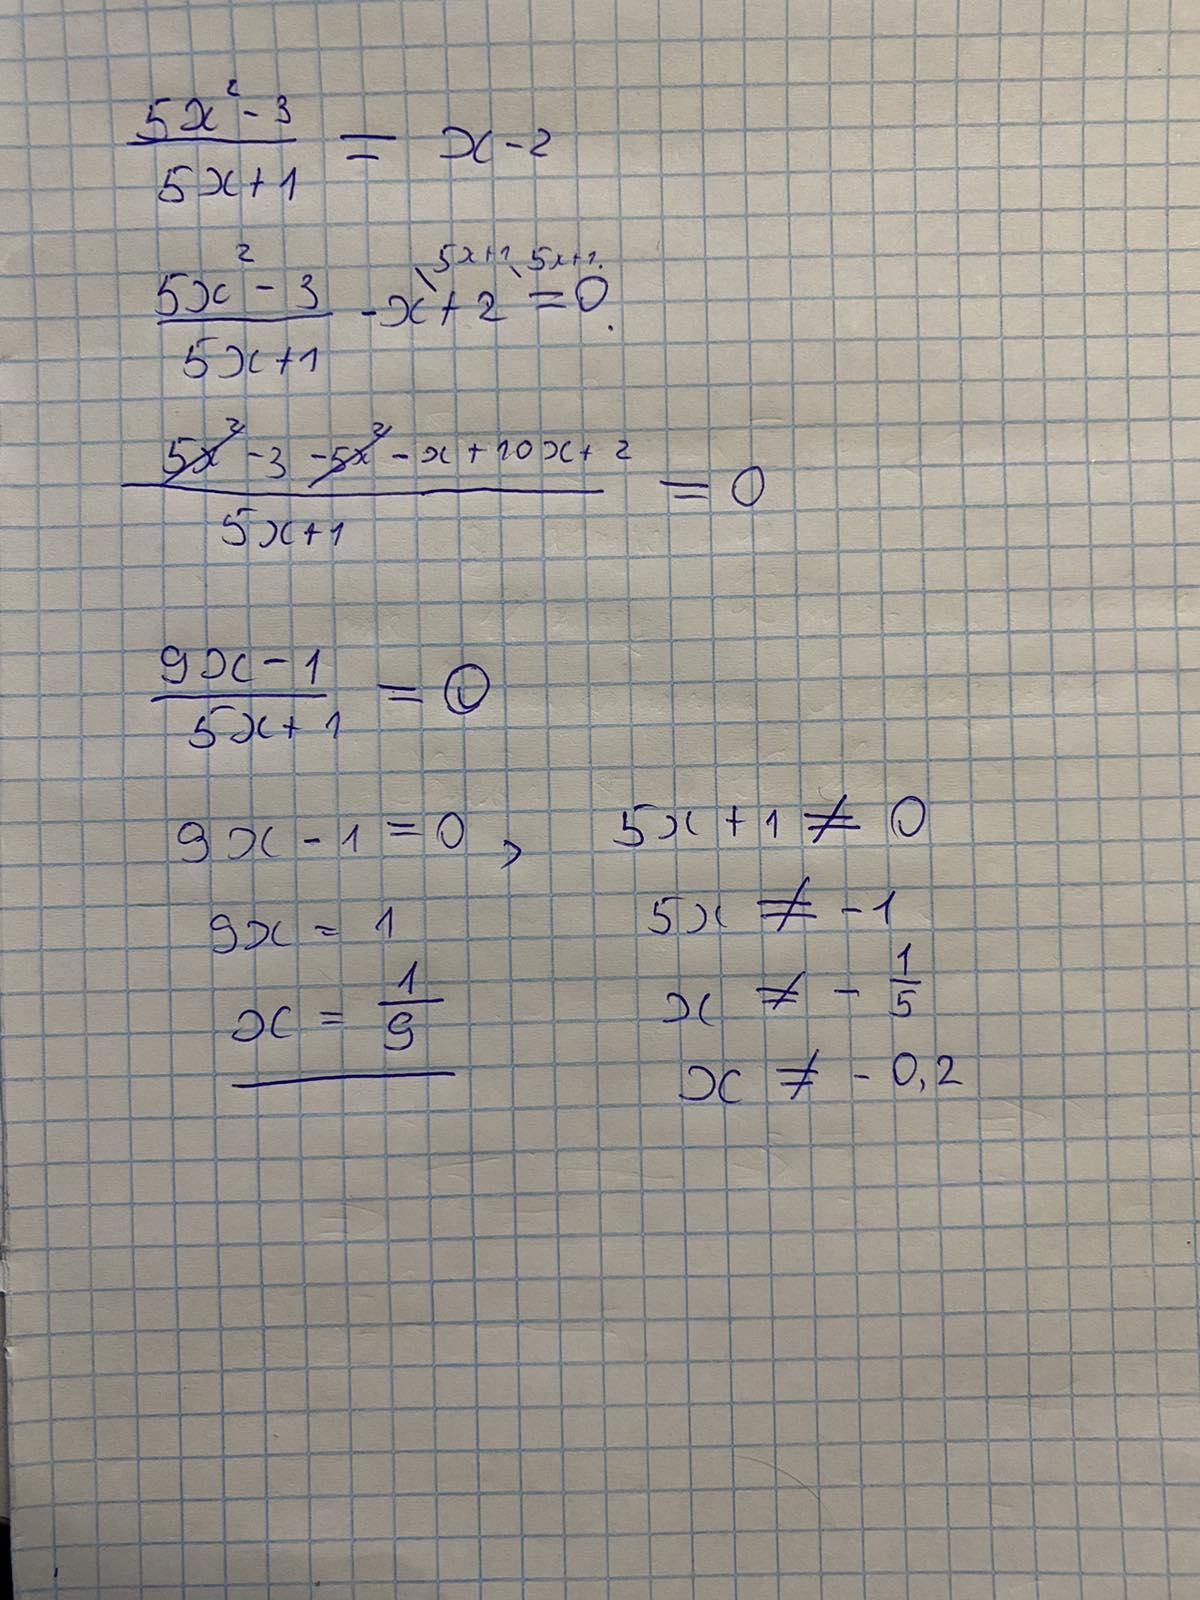 (5x² - 3)/(5x + 1) = x - 2
(5x² - 3)/(5x + 1) - x\5x+1 + 2\5x+1 = 0.
(5x² - 3 - 5x² - x + 10x + 2)/(5x + 1) = 0
(9x - 1)/(5x + 1) = 0
9x - 1 = 0, 5x + 1 ≠ 0
9x = 1 5x ≠ -1
x = 1/9 x ≠ - 1/5
x ≠ - 0,2